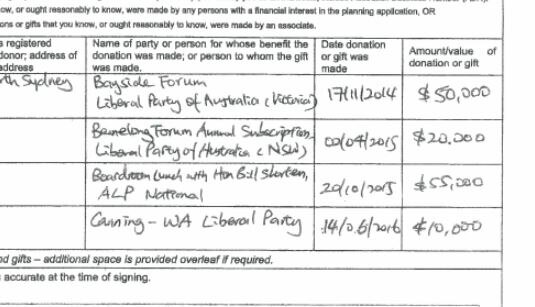 ow, or ought reasonably to know, were made by any persons with a financial interest in the planning application, OR
ons or gifts that you know, or ought reasonably to know, were made by an associate.
s registered
donor; address of
address
Name of party or person for whose benefit the
donation was made; or person to whom the gift
was made.
Date donation
or gift was
made
Amount/value of
donation or gift
rth Sydney
Bayside Forum
Liberal Party of Australia (Victoria)
17/11/2014
$50,000
Bennelong Forum Annual Subscription,
Liberal Party of Australia (NSW)
/04/2015
$20,000
Boardroom Lunch with Hon Bill Shorten,
ALP National
20/10/2015
$55,000
Canning - WA Liberal Party
14/06/2016
$10,000
nd gifts – additional space is provided overleaf if required.
accurate at the time of signing.